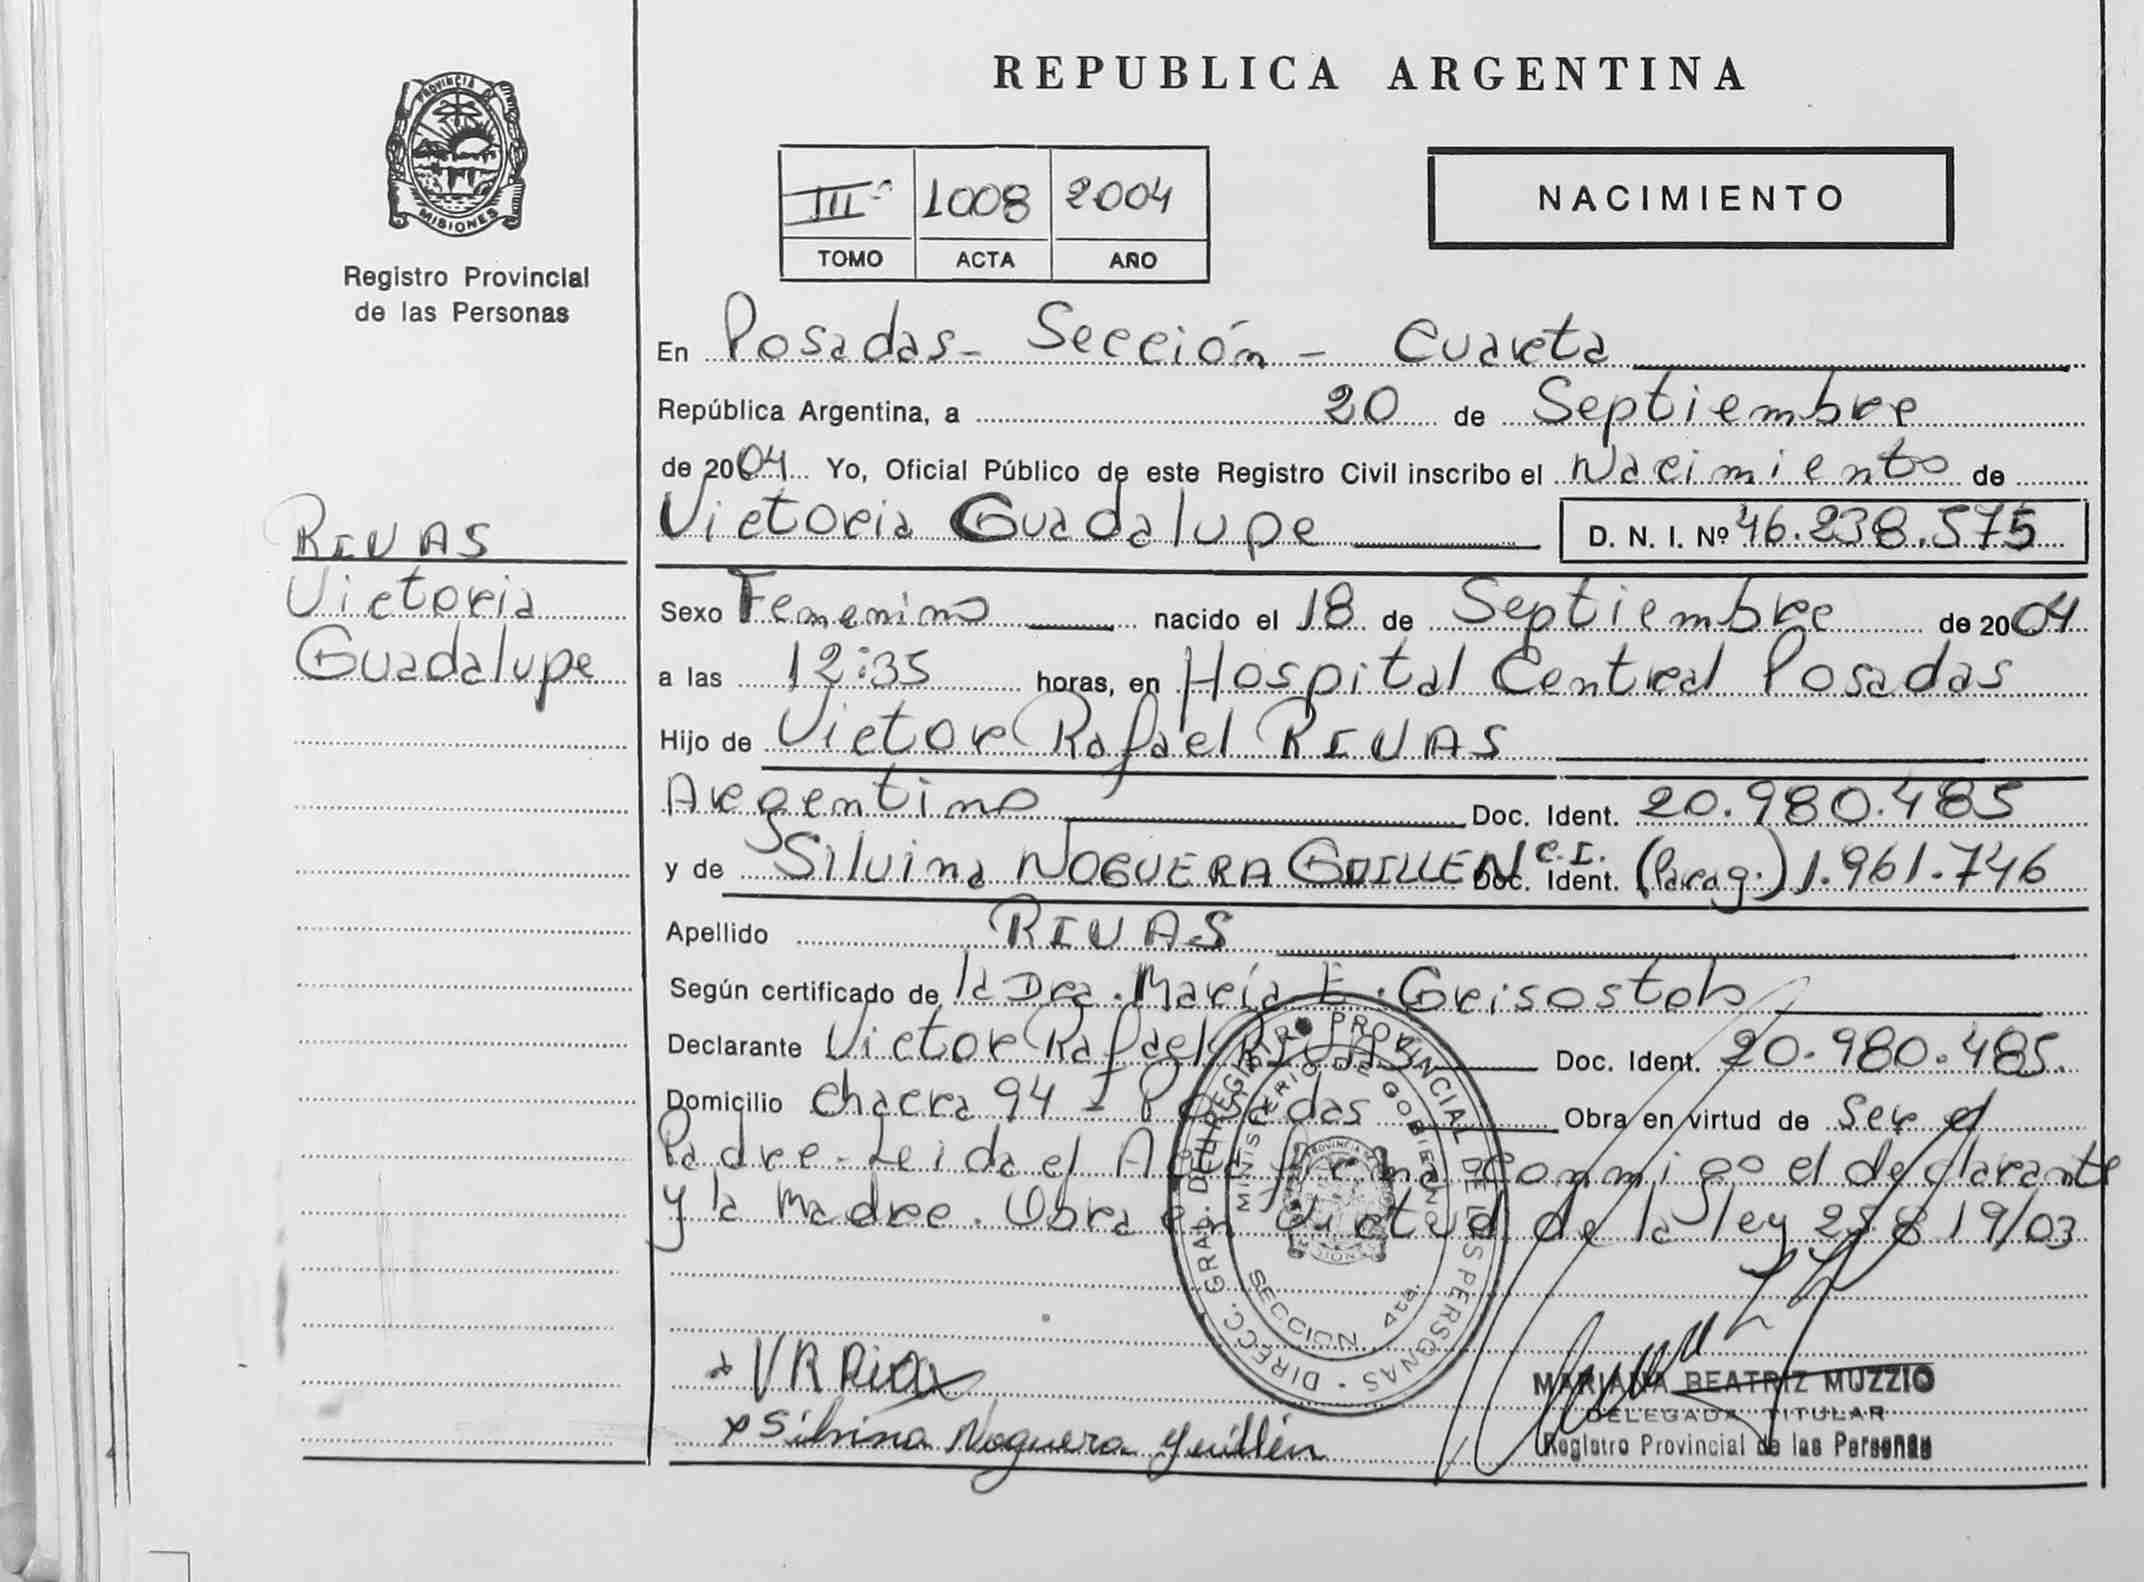 REPUBLICA ARGENTINA
PROVINCIA DE MISIONES
Registro Provincial
de las Personas
III° 1008 2004
TOMO ACTA AÑO
NACIMIENTO
En Posadas - Sección - Cuarta
República Argentina, a 20 de Septiembre
de 2004 Yo, Oficial Público de este Registro Civil inscribo el Nacimiento de
Victoria Guadalupe D. N. I. Nº 46.238.575
RIVAS
Victoria
Guadalupe
Sexo Femenino nacido el 18 de Septiembre de 2004
a las 12:35 horas, en Hospital Central Posadas
Hijo de Victor Rafael RIVAS
Argentino Doc. Ident. 20.980.485
y de Silvina NOGUERA GUILLEN C.I. Doc. Ident. (Parag.) 1.961.746
Apellido RIVAS
Según certificado de la Dra. María E.
Declarante Victor Rafael RIVAS Doc. Ident. 20.980.485.
Domicilio Chacra 94 - Posadas Obra en virtud de Ser el
Padre - Leida el Acta firma Conmigo el declarante
y la Madre. Obra en Virtud de la ley 25819/03
DIRECC. GRAL. DEL REGISTRO PROVINCIAL DE LAS PERSONAS
MINISTERIO DE GOBIERNO
SECCION 4ta.
x Silvina Noguera Guillén
MARIANA BEATRIZ MUZZIO
DELEGADA TITULAR
Registro Provincial de las Personas